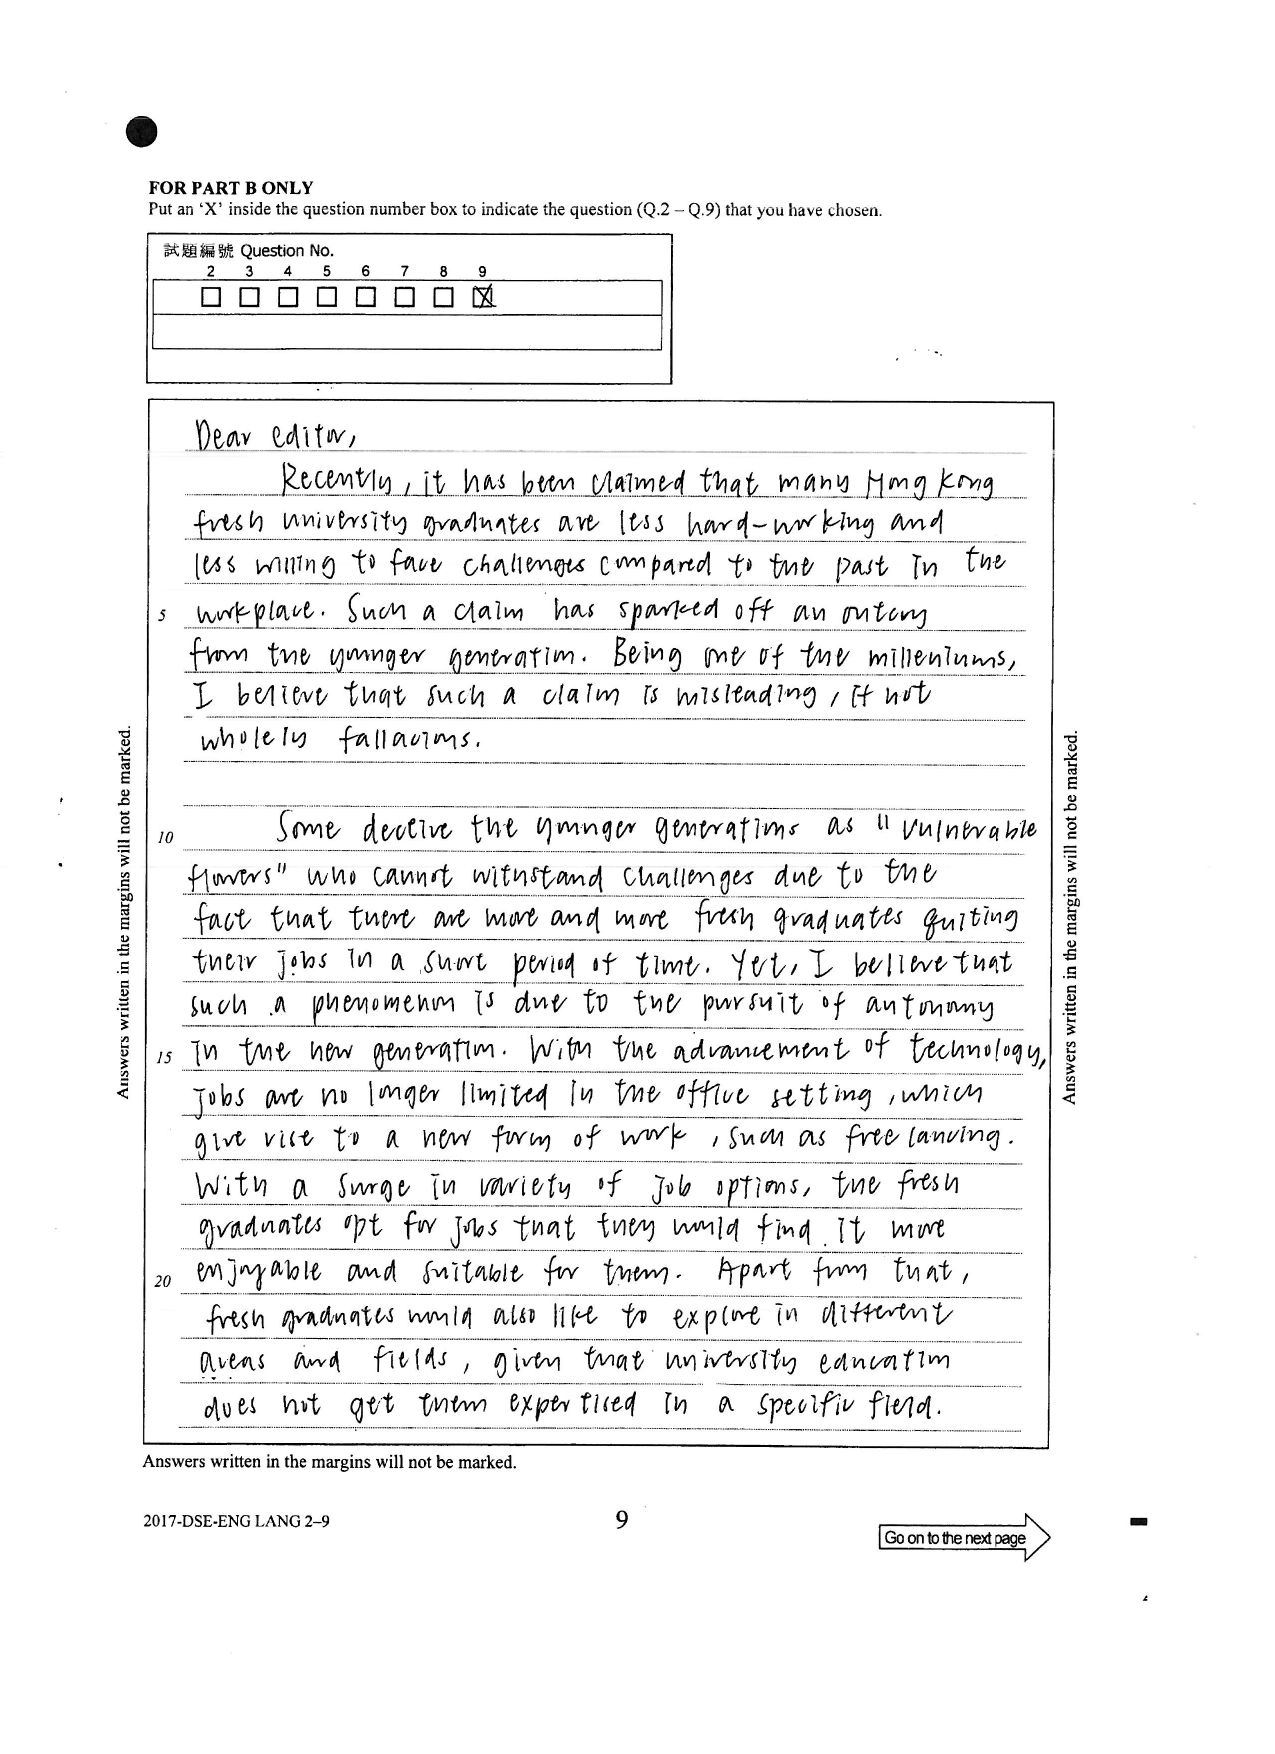 FOR PART B ONLY
Put an ‘X’ inside the question number box to indicate the question (Q.2 – Q.9) that you have chosen.
試題編號 Question No.
2 3 4 5 6 7 8 9
Dear editor,
Recently, it has been claimed that many Hong Kong
fresh university graduates are less hard-working and
less willing to face challenges compared to the past in the
5 workplace. Such a claim has sparked off an outcry
from the younger generation. Being one of the milleniums,
I believe that such a claim is misleading, if not
wholely fallacious.
10 Some deceive the younger generations as "vulnerable
flowers" who cannot withstand challenges due to the
fact that there are more and more fresh graduates quiting
their jobs in a short period of time. Yet, I believe that
such a phenomenon is due to the pursuit of autonomy
15 in the new generation. With the advancement of technology,
jobs are no longer limited in the office setting, which
give rise to a new form of work, such as freelancing.
With a surge in variety of job options, the fresh
graduates opt for jobs that they would find it more
20 enjoyable and suitable for them. Apart from that,
fresh graduates would also like to explore in different
areas and fields, given that university education
does not get them expertised in a specific field.
Answers written in the margins will not be marked.
Answers written in the margins will not be marked.
Answers written in the margins will not be marked.
2017-DSE-ENG LANG 2–9
9
Go on to the next page